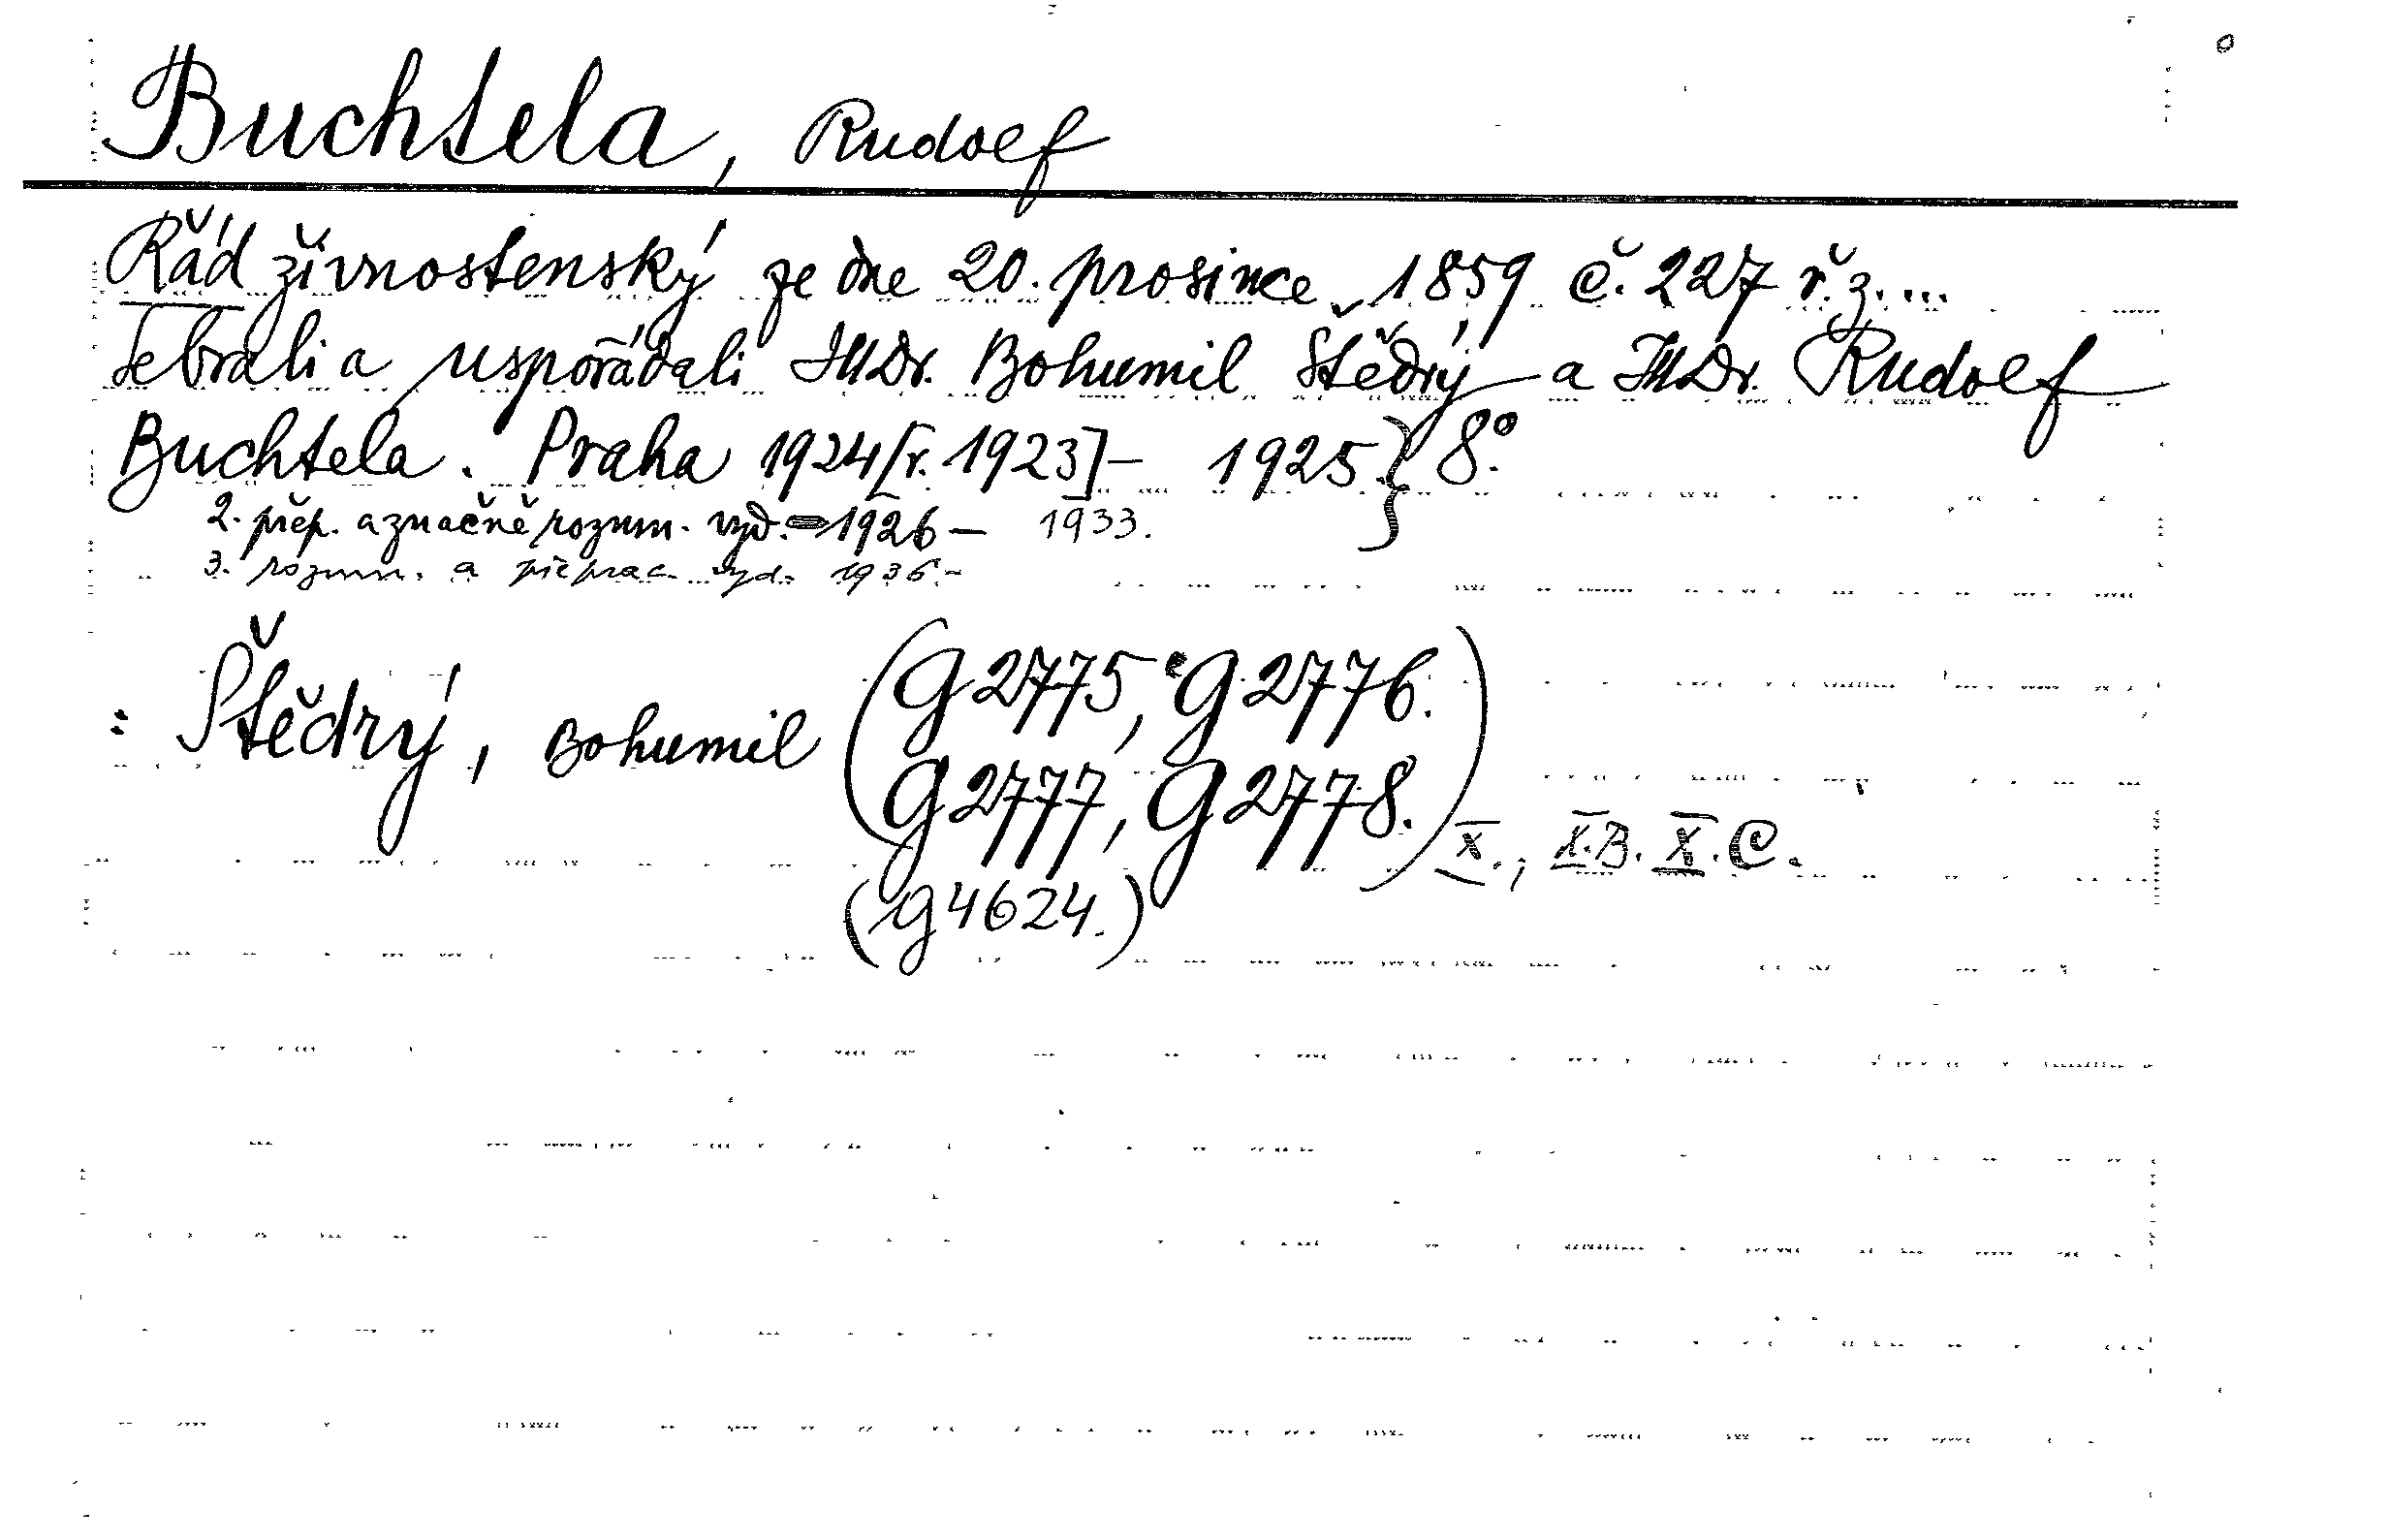 Buchtela, Rudolf
Řád živnostenský ze dne 20. prosince 1859 č. 227 ř. z. ...
Sebrali a uspořádali JUDr. Bohumil Štědrý a JUDr. Rudolf
Buchtela. Praha 1924 [r. 1923] - 1925.} 8°.
2. přep. a značně rozmn. vyd. 1926 - 1933.
3. rozmn. a přeprac. vyd. 1936 -
= Štědrý, Bohumil (G 2775, G 2776.
G 2777, G 2778.) X., X.B. X.C.
(G 4624.)